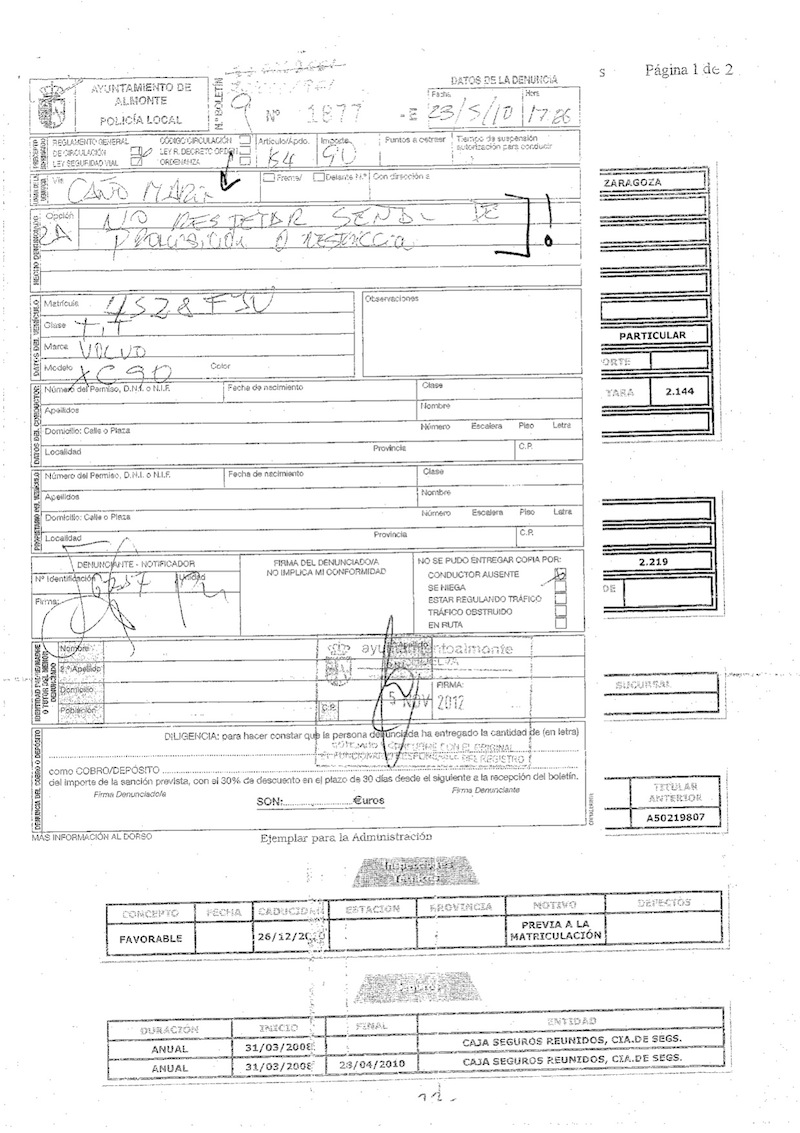 Página 1 de 2
s
AYUNTAMIENTO DE
ALMONTE
POLICÍA LOCAL
N.º BOLETÍN
9
Nº 1877
DATOS DE LA DENUNCIA
Fecha
Hora
23/5/10
17 26
REGLAMENTO GENERAL
DE CIRCULACIÓN
LEY SEGURIDAD VIAL
CÓDIGO CIRCULACIÓN
LEY R. DECRETO
ORDENANZA
Artículo/Apdo.
154
Importe
90
Puntos a detraer
Tiempo de suspensión
autorización para conducir
Vía
CAÑO
Frente/
Delante N.º
Con dirección a
HECHO DENUNCIADO
Opción
2A
NO RESPETAR SEÑAL DE
!
DATOS DEL VEHÍCULO
Matrícula
4528 FJV
Clase
T.T
Marca
VOLVO
Modelo
XC90
Color
Observaciones
ZARAGOZA
PARTICULAR
ORTE
TARA
2.144
DATOS DEL CONDUCTOR
Número del Permiso, D.N.I. o N.I.F.
Fecha de nacimiento
Clase
Apellidos
Nombre
Domicilio: Calle o Plaza
Número Escalera Piso Letra
Localidad
Provincia
C.P.
PROPIETARIO DEL VEHÍCULO
Número del Permiso, D.N.I. o N.I.F.
Fecha de nacimiento
Clase
Apellidos
Nombre
Domicilio: Calle o Plaza
Número Escalera Piso Letra
Localidad
Provincia
C.P.
2.219
DE
DENUNCIANTE - NOTIFICADOR
Nº Identificación
Unidad
Firma:
FIRMA DEL DENUNCIADO/A
NO IMPLICA MI CONFORMIDAD
NO SE PUDO ENTREGAR COPIA POR:
CONDUCTOR AUSENTE
SE NIEGA
ESTAR REGULANDO TRÁFICO
TRÁFICO OBSTRUIDO
EN RUTA
Nombre
2.º Apellido
Domicilio
Población
C.P.
FIRMA:
ayuntamientoalmonte
HUELVA
5 NOV 2012
SUCURSAL
DILIGENCIA: para hacer constar que la persona denunciada ha entregado la cantidad de (en letra)
EL FUNCIONARIO RESPONSABLE DEL REGISTRO
como COBRO/DEPÓSITO
del importe de la sanción prevista, con el 30% de descuento en el plazo de 30 días desde el siguiente a la recepción del boletín.
Firma Denunciado/a
Firma Denunciante
SON: €uros
MÁS INFORMACIÓN AL DORSO
Ejemplar para la Administración
TITULAR
ANTERIOR
A50219807
Inspecciones
Técnicas
CONCEPTO FECHA CADUCIDAD ESTACION PROVINCIA MOTIVO DEFECTOS
FAVORABLE 26/12/2010 PREVIA A LA
MATRICULACIÓN
DURACIÓN INICIO FINAL ENTIDAD
ANUAL 31/03/2008 CAJA SEGUROS REUNIDOS, CIA.DE SEGS.
ANUAL 31/03/2008 28/04/2010 CAJA SEGUROS REUNIDOS, CIA.DE SEGS.